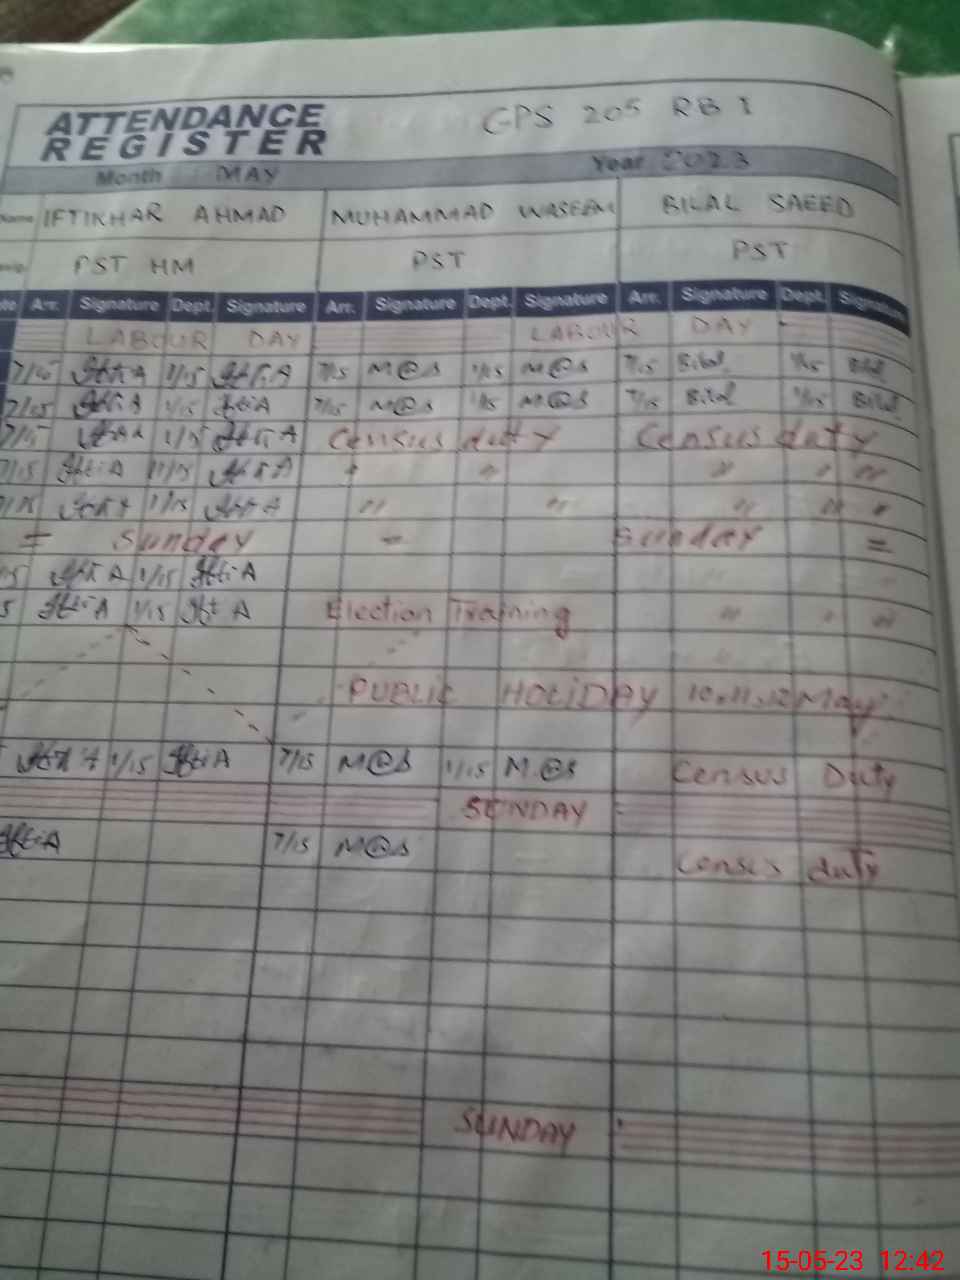 ATTENDANCE REGISTER GPS 205 RB I
Month MAY Year 2023
Name IFTIKHAR AHMAD MUHAMMAD WASEEM BILAL SAEED
PST HM PST PST
Arr. Signature Dept. Signature Arr. Signature Dept. Signature Arr. Signature Dept. Signature
LABOUR DAY LABOUR DAY
7/15 IftiA 1/15 IftiA 7/15 M@S 1/15 M@S 7/15 Bilal 1/15 Bilal
7/15 IftiA 1/15 IftiA 7/15 M@S 1/15 M@S 7/15 Bilal 1/15 Bilal
7/15 IftiA 1/15 IftiA Census duty Census duty
7/15 IftiA 1/15 IftiA " " " " "
7/15 IftiA 1/15 IftiA " " " " "
= Sunday = Sunday =
15 IftiA 1/15 IftiA
5 IftiA 1/15 IftiA Election Training " " "
PUBLIC HOLIDAY 10.11.12 May
IftiA 1/15 IftiA 7/15 M@S 1/15 M@S Census Duty
SUNDAY
IftiA 7/15 M@S Census duty
SUNDAY
15-05-23 12:42